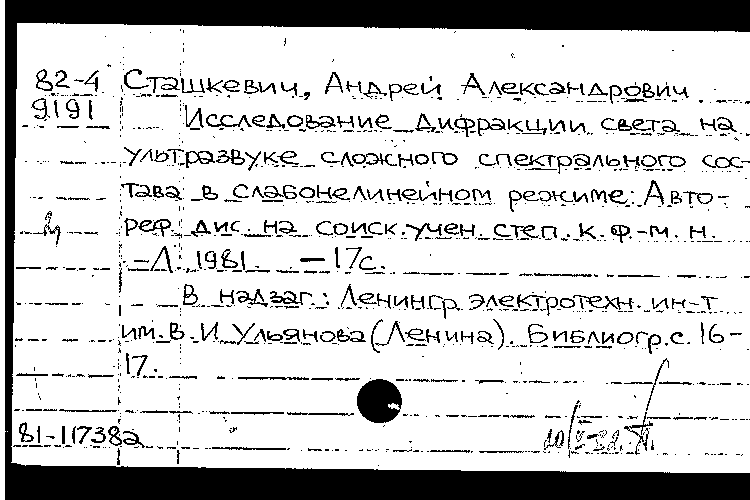 82-4 Сташкевич, Андрей Александрович.
9191 Исследование дифракции света на
ультразвуке сложного спектрального сос-
тава в слабонелинейном режиме: Авто-
реф. дис. на соиск. учен. степ. к. ф.-м. н.
-Л., 1981. -17с.
В надзаг.: Ленингр. электротехн. ин-т
им. В. И. Ульянова (Ленина). Библиогр. с. 16-
17.
81-117382